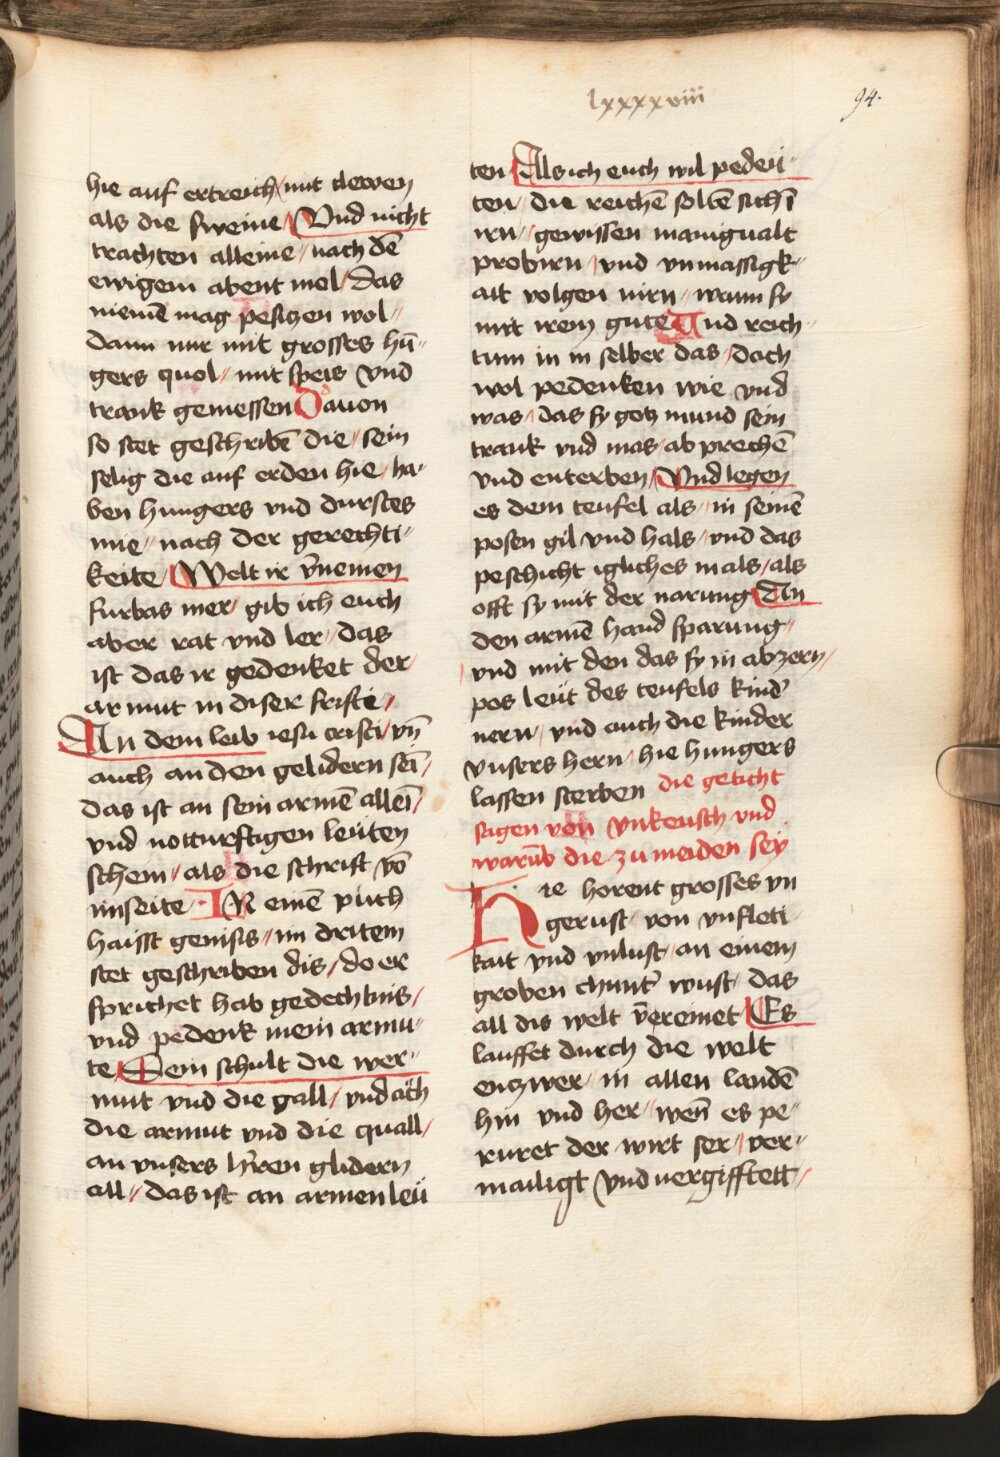 lxxxxviii
94.
hie auf ertreich / mit clewen
als die sweine / Vnd nicht
trachten alleine // nach dē
ewigem abent mol / das
niemē mag pesiczen wol //
dann nur mit grosses hū //
gers quol / mit speis vnd
trank geniessen Dauon
so stet geschribē die / sein
selig die auf erden hie / ha //
ben hungers vnd durstes
mie // nach der gerechti //
keite / Welt ir v̄nemen
furbas mer / gib ich euch
aber rat vnd ler / das
ist das ir gedenket der
armut in diser friste /
An dem leib iesu cristi / vn̄
auch an den gelidern seī /
das ist an sein armē alleī /
vnd notturftigen leuten
schein / als die schrift vō
im seite · IN einē puch
haisst genisis // im dritem
stet geschriben dis / do er
sprichet hab gedechtnis /
vnd pedenk mein armu //
te / Dein schult die wer //
mut vnd die gall / vnd ach
die armut vnd die quall /
an vnsers h̄ren glidern
all // das ist an armen leü
ten / Als ich euch wil pedeü //
ten / die reichē solbē sichī
irn / gewissen manigualt
probirn / vnd vnmassigk //
ait volgen nirn // wann sy
mit irem gute Und reich //
tum in in selber das / doch
wol pedenken wie vnd
was / das sy gotz mund sein
trank vnd mas / ab prechē
vnd enterben / Vnd legen
es dem teufel als / in seinē
posen gil vnd hals // vnd das
peschicht igliches mals / als
offt sy mit der narung An
den armē hand sparung //
vnd mit den das sy in abzern /
pos leüt des teufels kind
nern / vnd auch die kinder
vnsers hern / hie hungers
lassen sterben die geticht
sagen von vnkeusch vnd
warūb die zu meiden sey
Hie horent grosses vn
gerust / von vnfleti //
kait vnd vnlust / an einem
groben chunt' wust / das
all dis welt v̄ereinet / Es
lauffet durch die welt
enzwer / in allen landē
hin vnd her // wen̄ es pe //
ruret der wirt ser // ver //
mailigt vnd uergifftett /